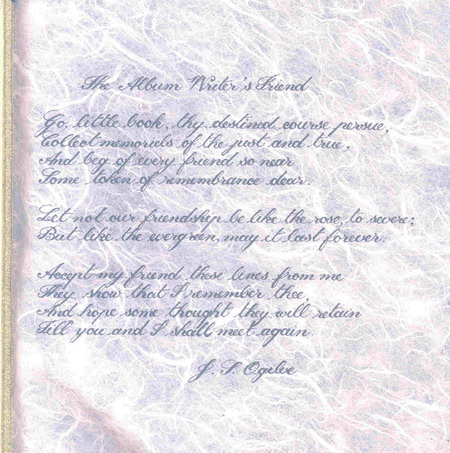 The Album Writer's Friend
Go, little book, thy destined course persue,
Collect memorials of the just and true,
And beg of every friend so near
Some token of remembrance dear.
Let not our friendship be like the rose, to severe;
But like the evergreen, may it last forever.
Accept my friend these lines from me
They show that I remember thee,
And hope some thought they will retain
Till you and I shall meet again.
J. S. Ogilve